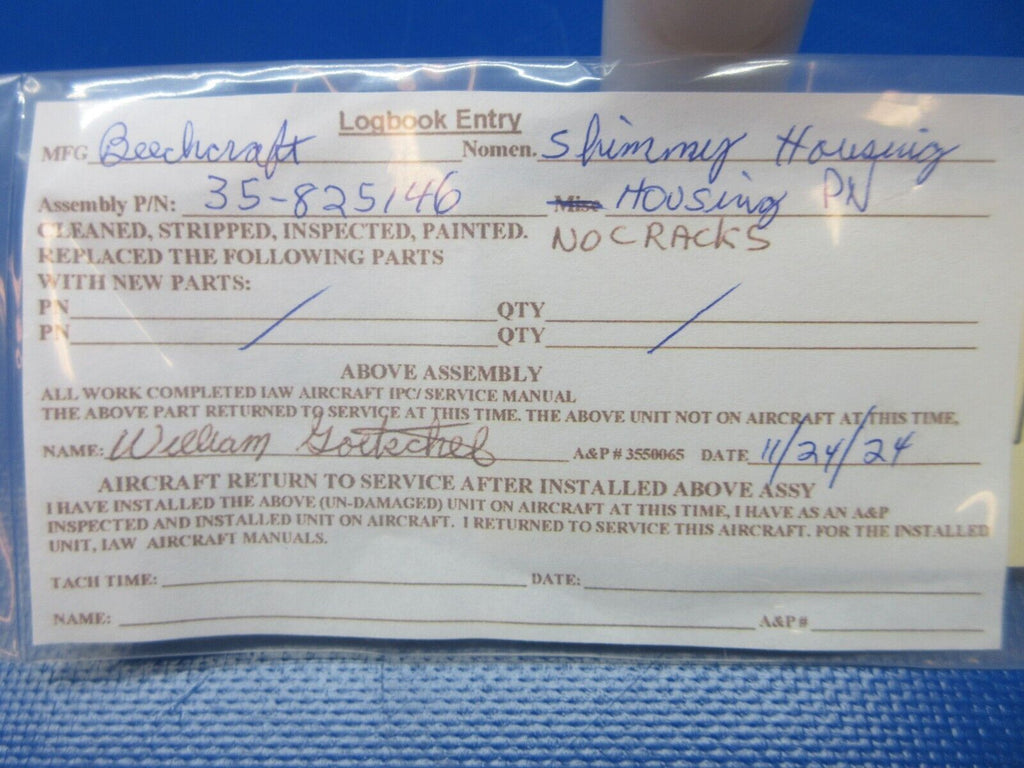 Logbook Entry
MFG Beechcraft Nomen. Shimmy Housing
Assembly P/N: 35-825146 Misc Housing PN
CLEANED, STRIPPED, INSPECTED, PAINTED. NO CRACKS
REPLACED THE FOLLOWING PARTS
WITH NEW PARTS:
PN / QTY /
PN QTY
ABOVE ASSEMBLY
ALL WORK COMPLETED IAW AIRCRAFT IPC/ SERVICE MANUAL
THE ABOVE PART RETURNED TO SERVICE AT THIS TIME. THE ABOVE UNIT NOT ON AIRCRAFT AT THIS TIME,
NAME: William A&P # 3550065 DATE 11/24/24
AIRCRAFT RETURN TO SERVICE AFTER INSTALLED ABOVE ASSY
I HAVE INSTALLED THE ABOVE (UN-DAMAGED) UNIT ON AIRCRAFT AT THIS TIME, I HAVE AS AN A&P
INSPECTED AND INSTALLED UNIT ON AIRCRAFT. I RETURNED TO SERVICE THIS AIRCRAFT. FOR THE INSTALLED
UNIT, IAW AIRCRAFT MANUALS.
TACH TIME: DATE:
NAME: A&P #